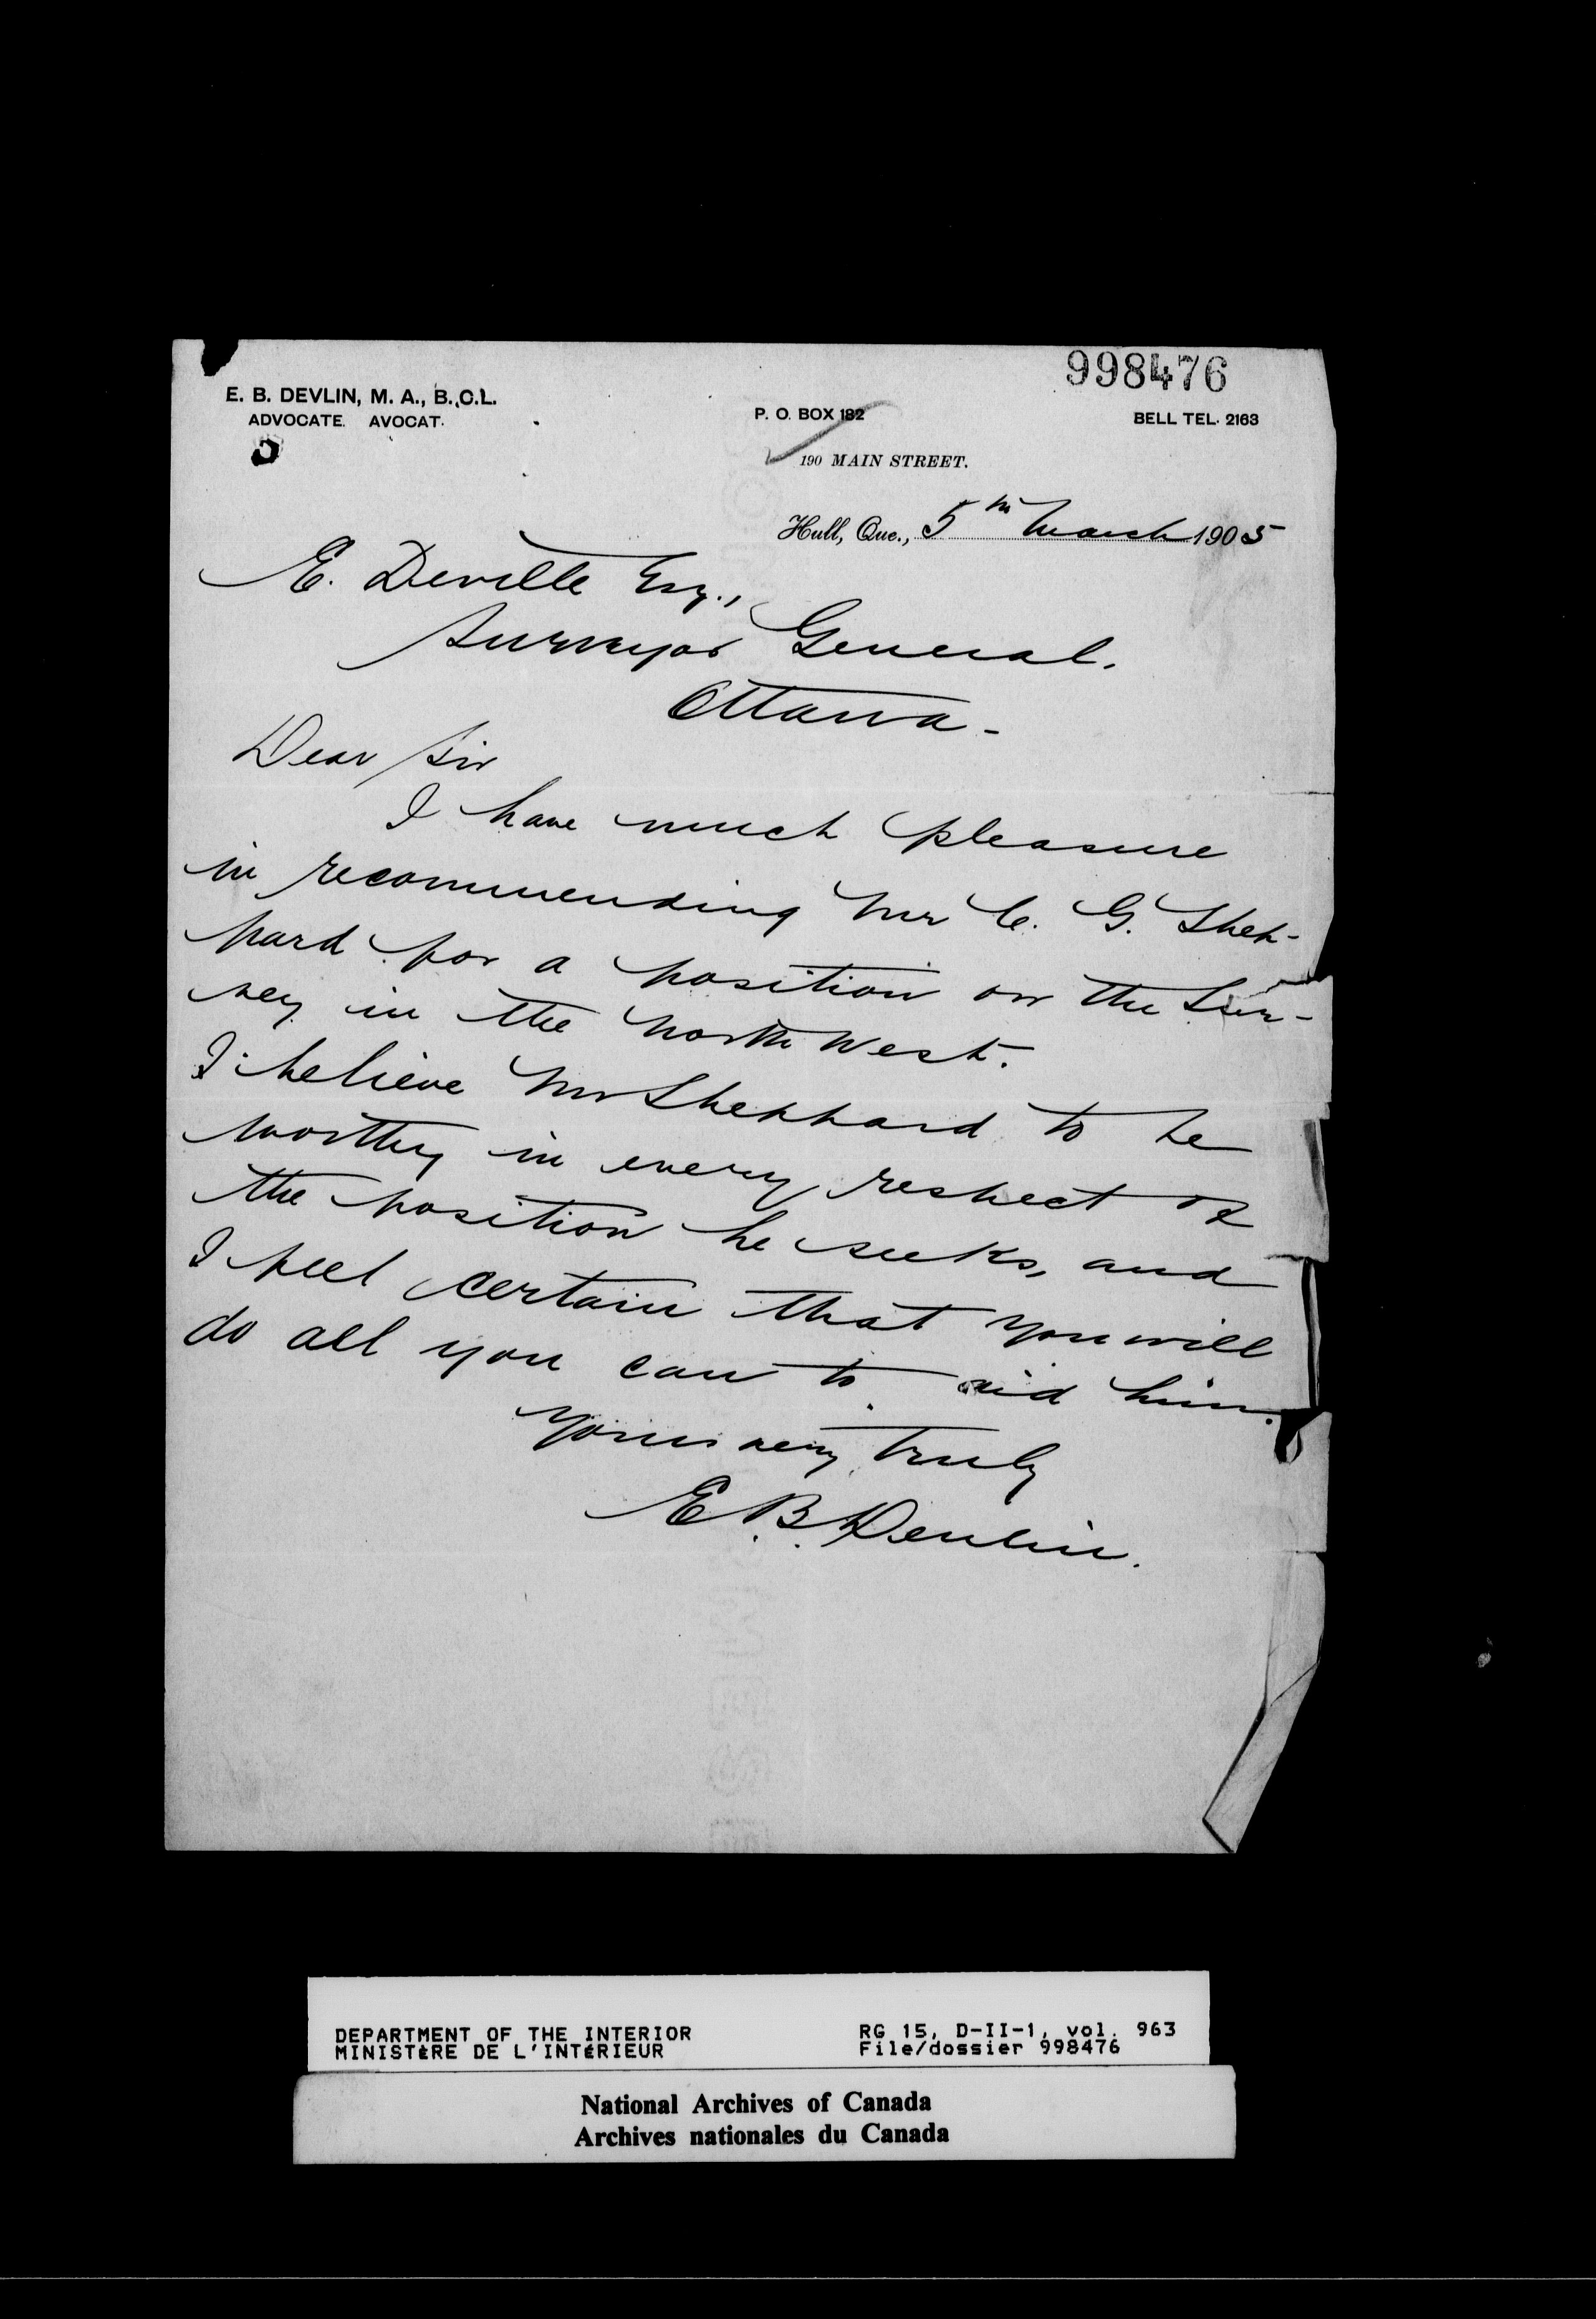 998476
E. B. DEVLIN, M. A., B.C.L.
ADVOCATE. AVOCAT.
P. O. BOX 182
BELL TEL. 2163
190 MAIN STREET.
Hull, Que., 5th March 1905
E. Deville Esq.,
Surveyor General.
Ottawa -
Dear Sir
I have much pleasure
in recommending Mr C. G. Shep-
pard for a position on the Sur-
vey in the North West.
I believe Mr Sheppard to be
worthy in every respect of
the position he seeks, and
I feel certain that you will
do all you can to aid him.
Yours very truly
E. B. Devlin.
DEPARTMENT OF THE INTERIOR
MINISTÈRE DE L'INTÉRIEUR
RG 15, D-II-1, vol. 963
File/dossier 998476
National Archives of Canada
Archives nationales du Canada